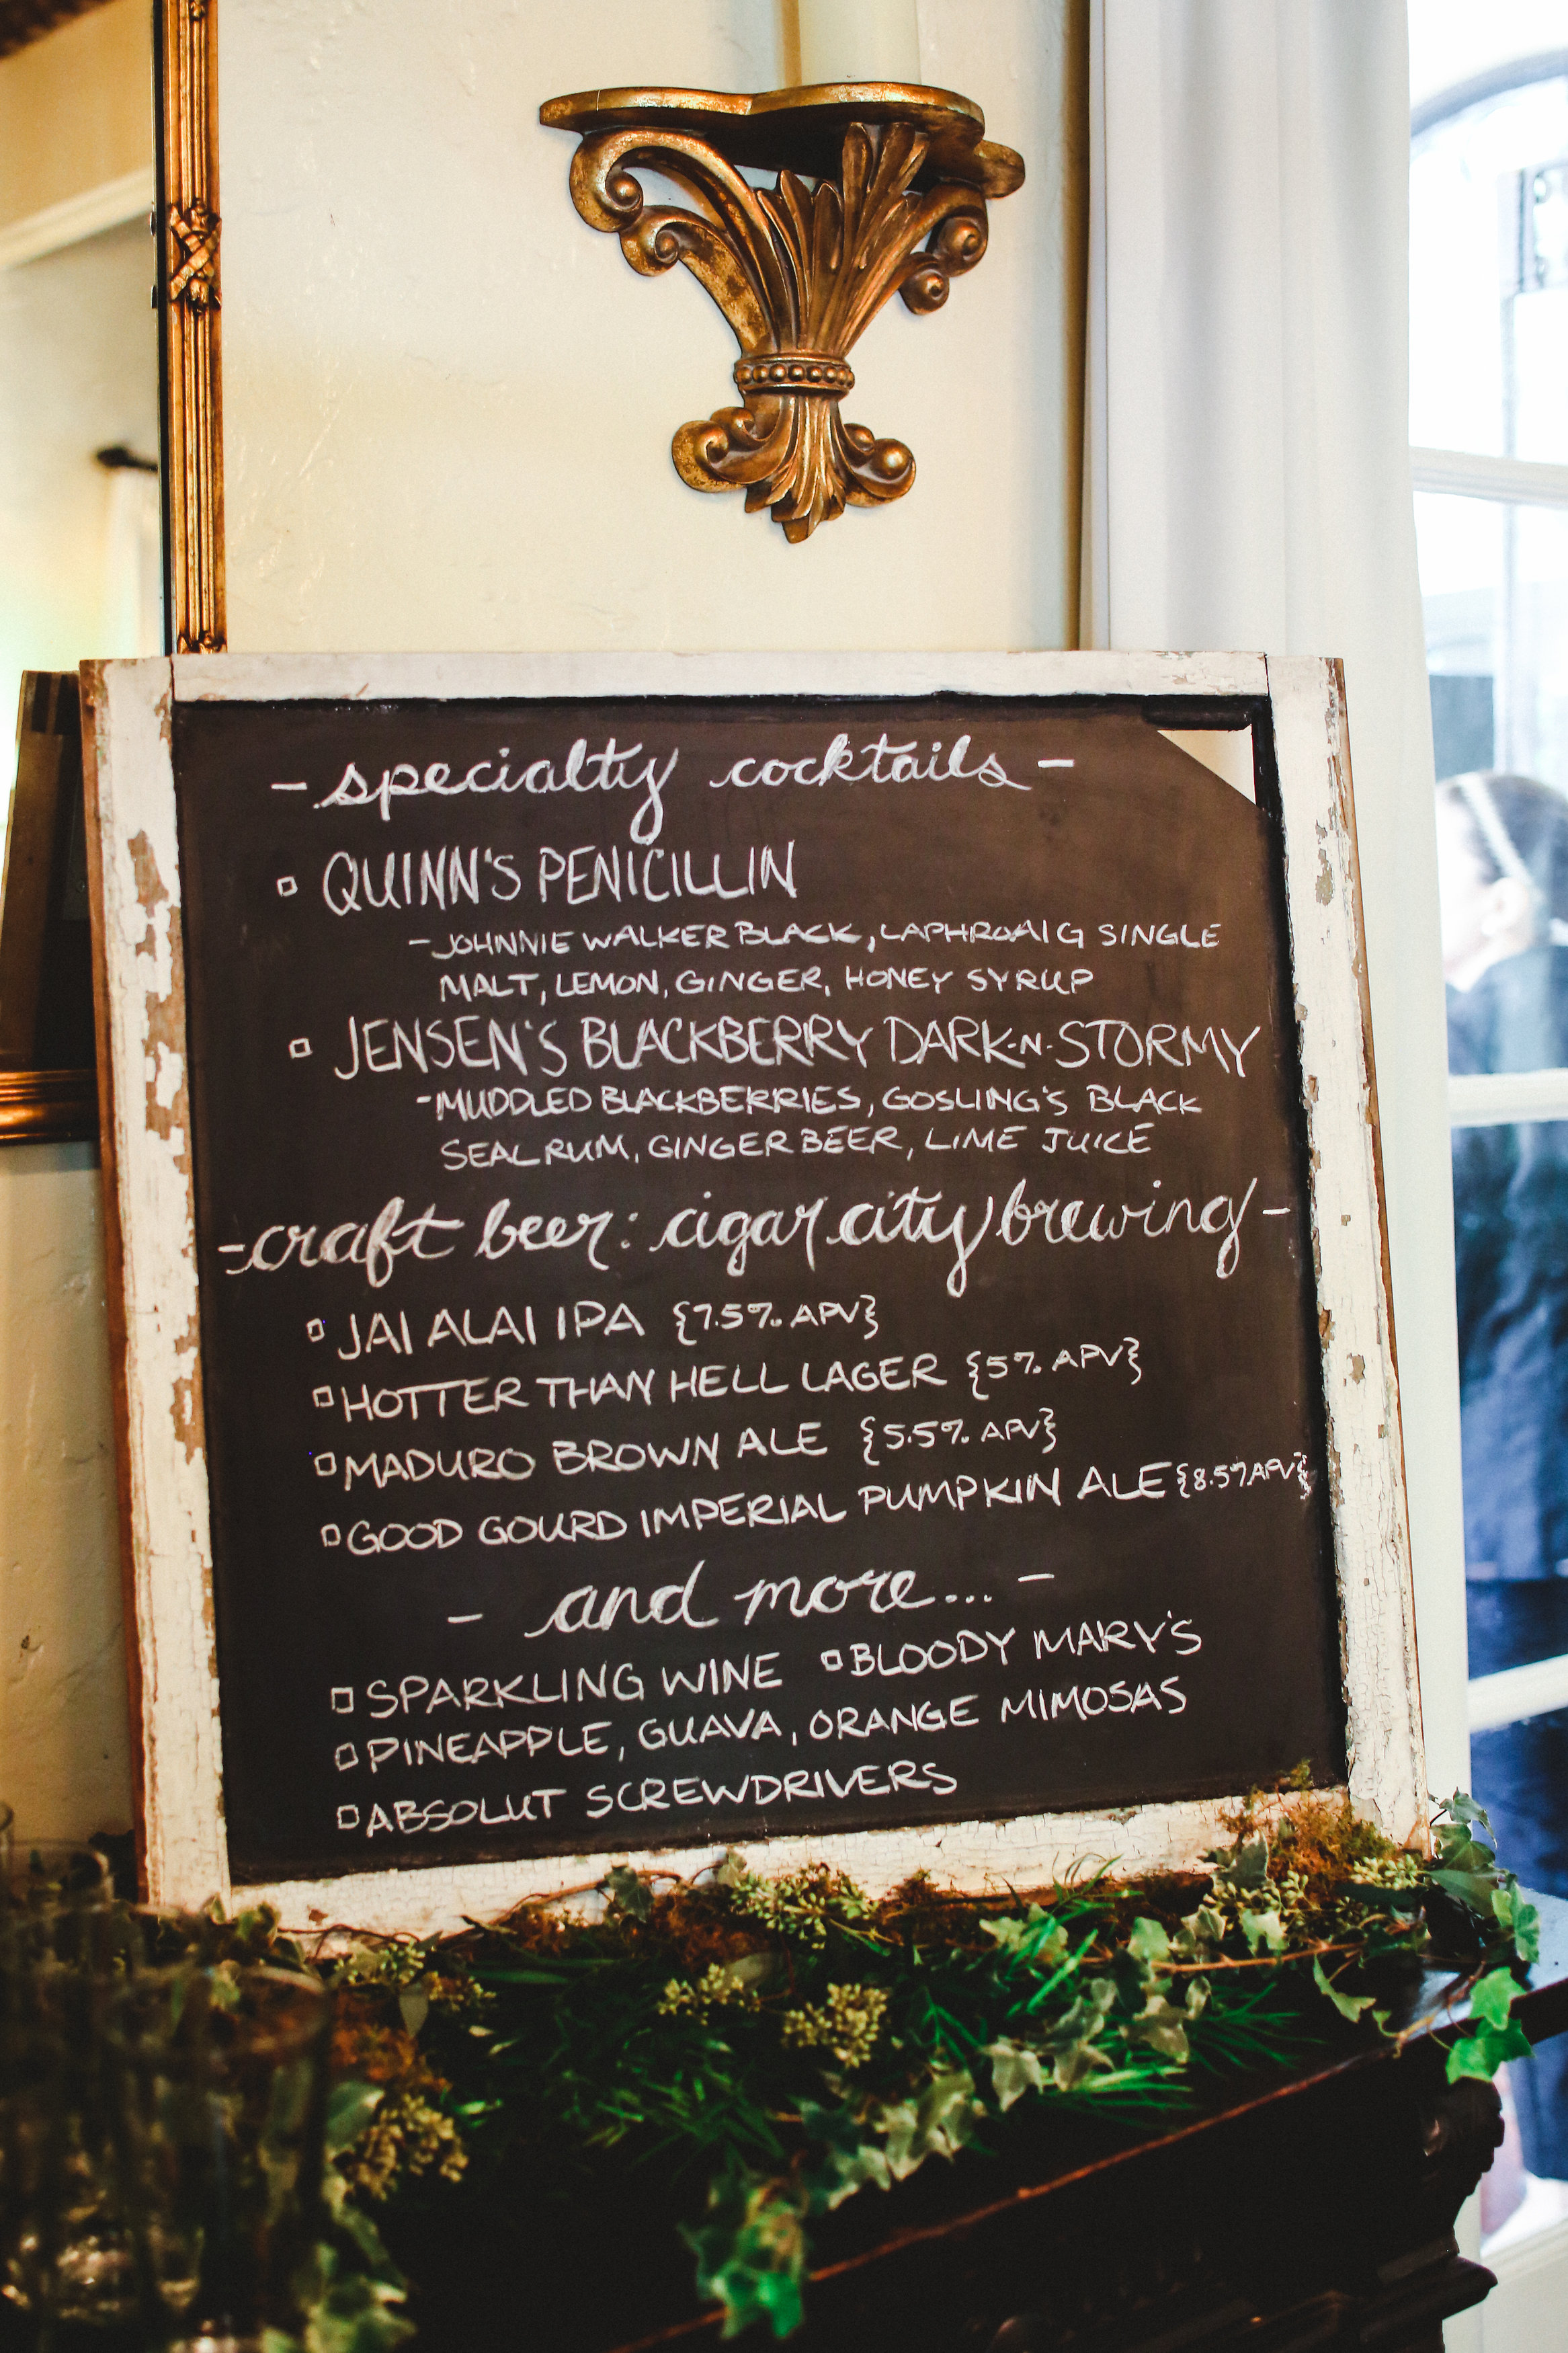 - specialty cocktails -
▫ QUINN'S PENICILLIN
- JOHNNIE WALKER BLACK, LAPHROAIG SINGLE
MALT, LEMON, GINGER, HONEY SYRUP
▫ JENSEN'S BLACKBERRY DARK-N-STORMY
- MUDDLED BLACKBERRIES, GOSLING'S BLACK
SEAL RUM, GINGER BEER, LIME JUICE
- craft beer: cigar city brewing -
▫ JAI ALAI IPA {7.5% APV}
▫ HOTTER THAN HELL LAGER {5% APV}
▫ MADURO BROWN ALE {5.5% APV}
▫ GOOD GOURD IMPERIAL PUMPKIN ALE {8.5% APV}
- and more... -
▫ SPARKLING WINE ▫ BLOODY MARY'S
▫ PINEAPPLE, GUAVA, ORANGE MIMOSAS
▫ ABSOLUT SCREWDRIVERS